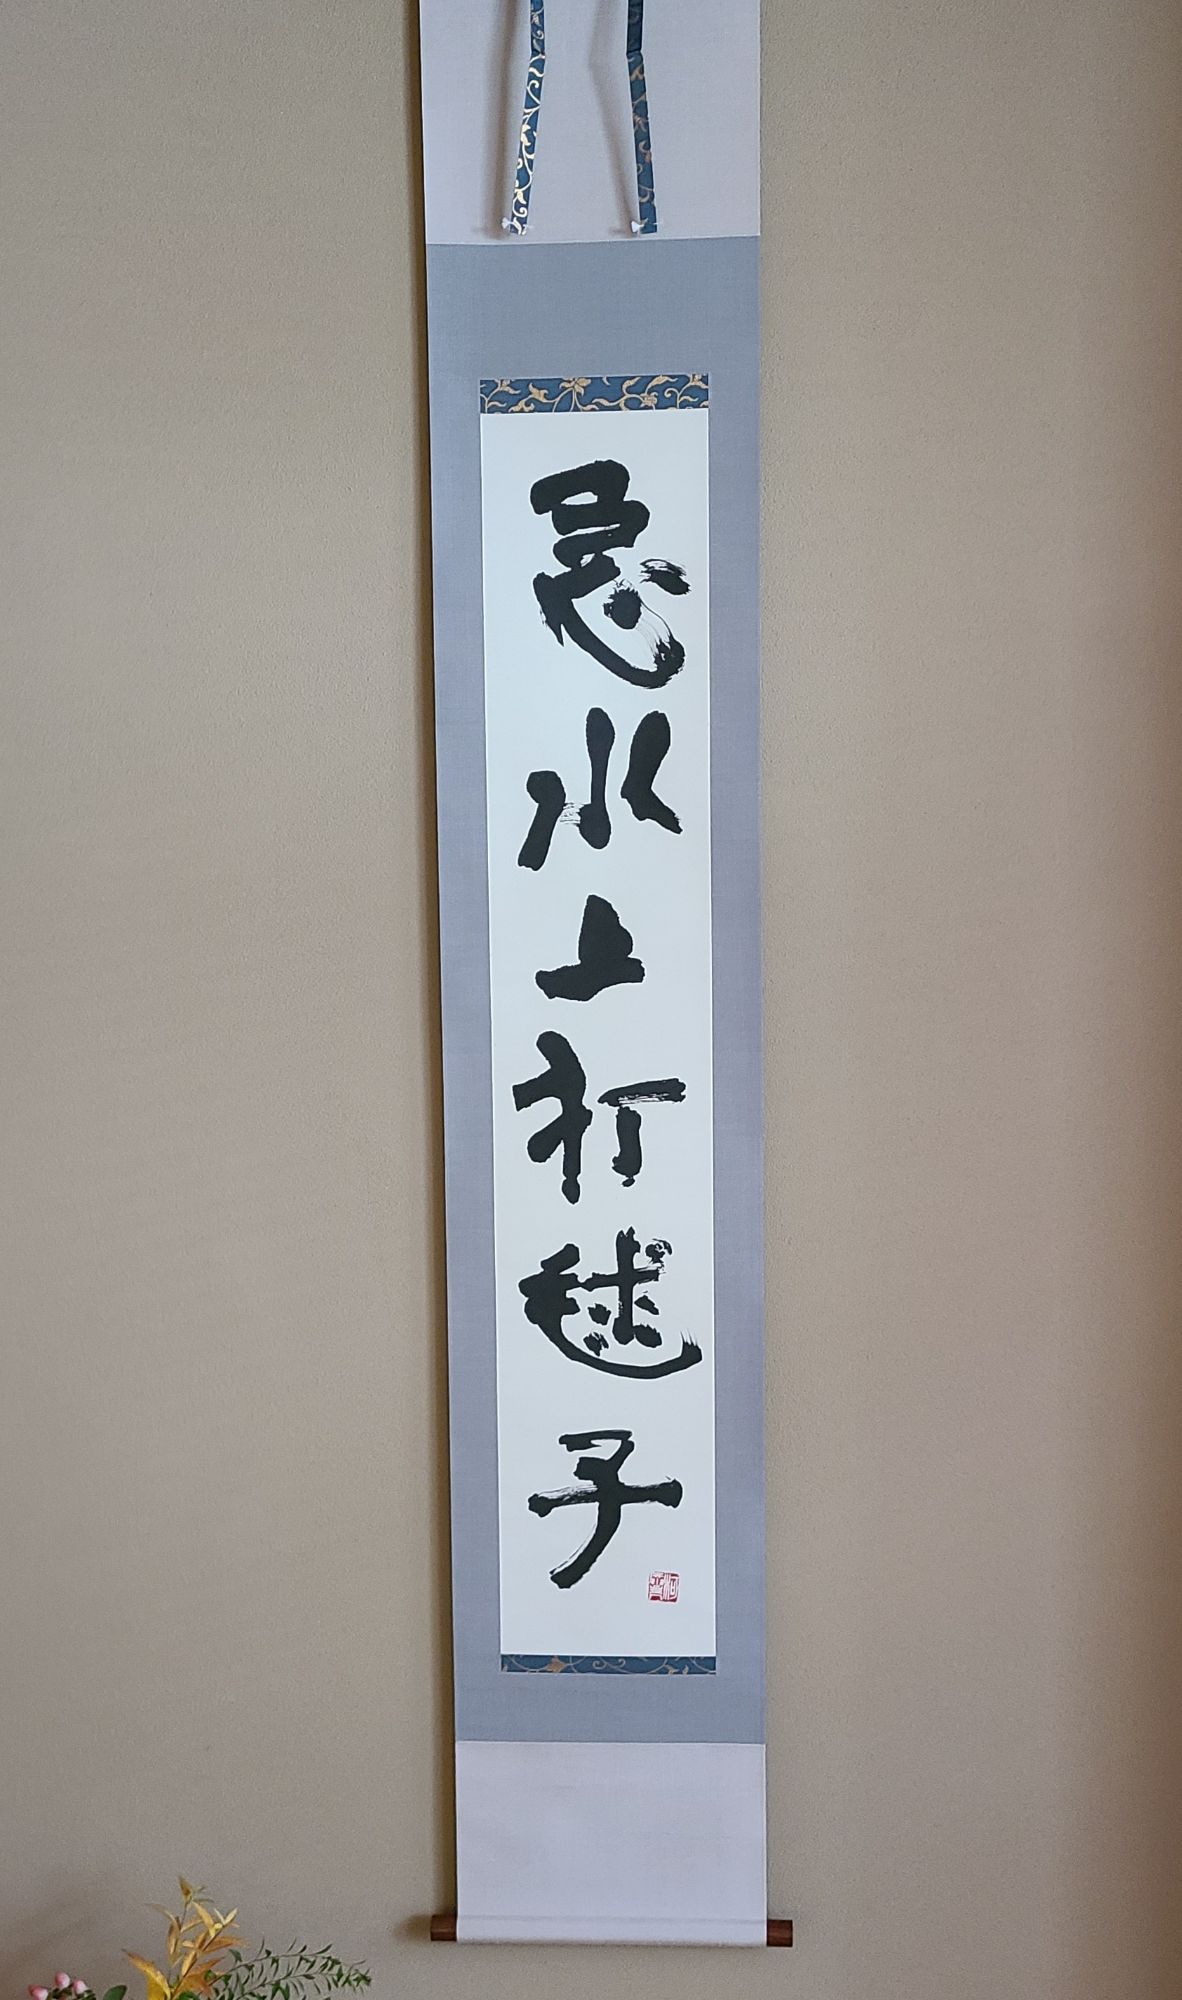 急水上打毬子